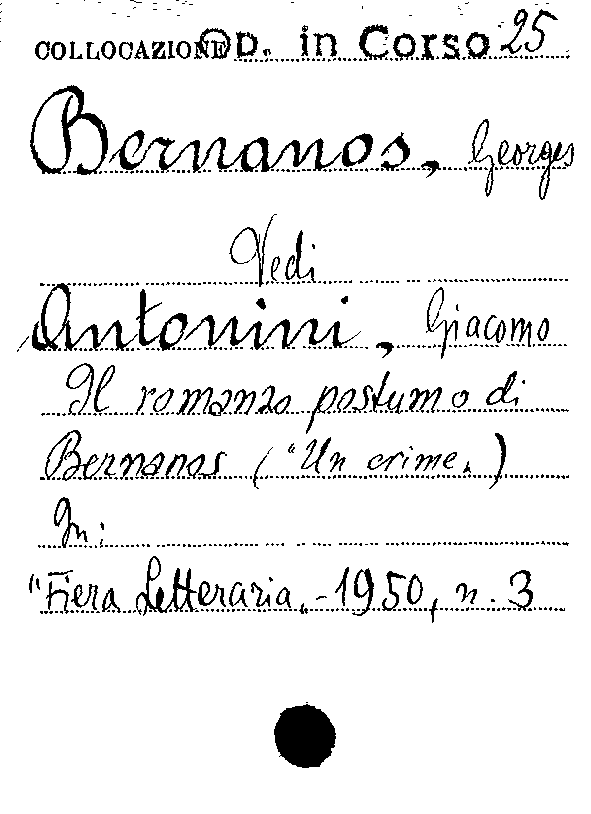 COLLOCAZIONE D. in Corso 25
Bernanos, Georges
Vedi
Antonini, Giacomo
Il romanzo postumo di
Bernanos ("Un crime„)
In:
"Fiera Letteraria„ - 1950, n. 3